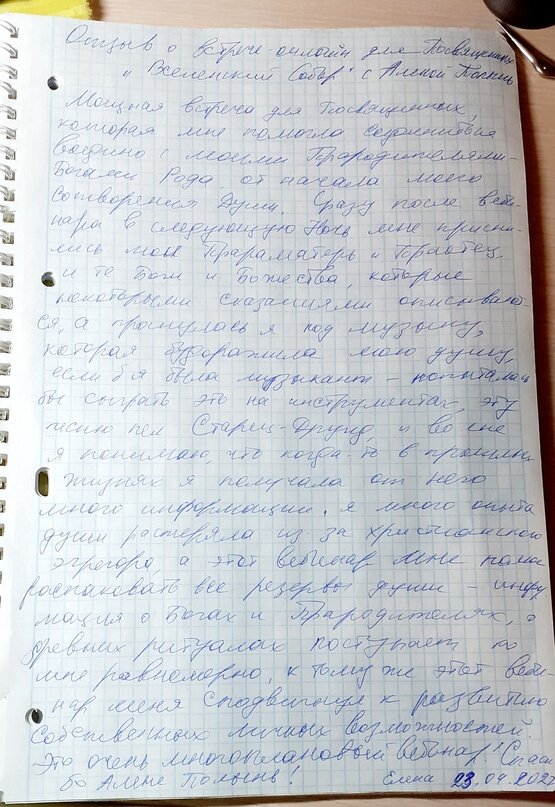 Отзыв о встрече-онлайн для Посвященных
и Вселенский Собор" с Аленой Полынь
Мощная встреча для Посвященных,
которая мне помогла соединиться
воедино с моими Прародителями-
Богами Рода, от начала моего
сотворения Души. Сразу после веби-
нара в следующую Ночь мне присни-
лись мои Праматерь и Праотец
и те Боги и Божества, которые
некоторыми сказаниями описывают-
ся, а проснулась я под музыку,
которая будоражила мою душу,
если б я была музыкант - попыталась
бы сыграть это на инструментах, эту
песню пел Старец-Друид, и во сне
я понимаю, что когда-то в прошлых
жизнях я получала от него
много информации. я много опыта
души растеряла из-за христианского
эгрегора, а этот вебинар мне помог
распаковать все резервы души - инфор
мация о Богах и Прародителях, о
древних ритуалах поступает ко
мне равномерно, к тому же этот веби-
нар меня сподвигнул к развитию
собственных личных возможностей.
Это очень многоплановый вебинар! Спаси
бо Алене Полынь! Елена 23.04.202